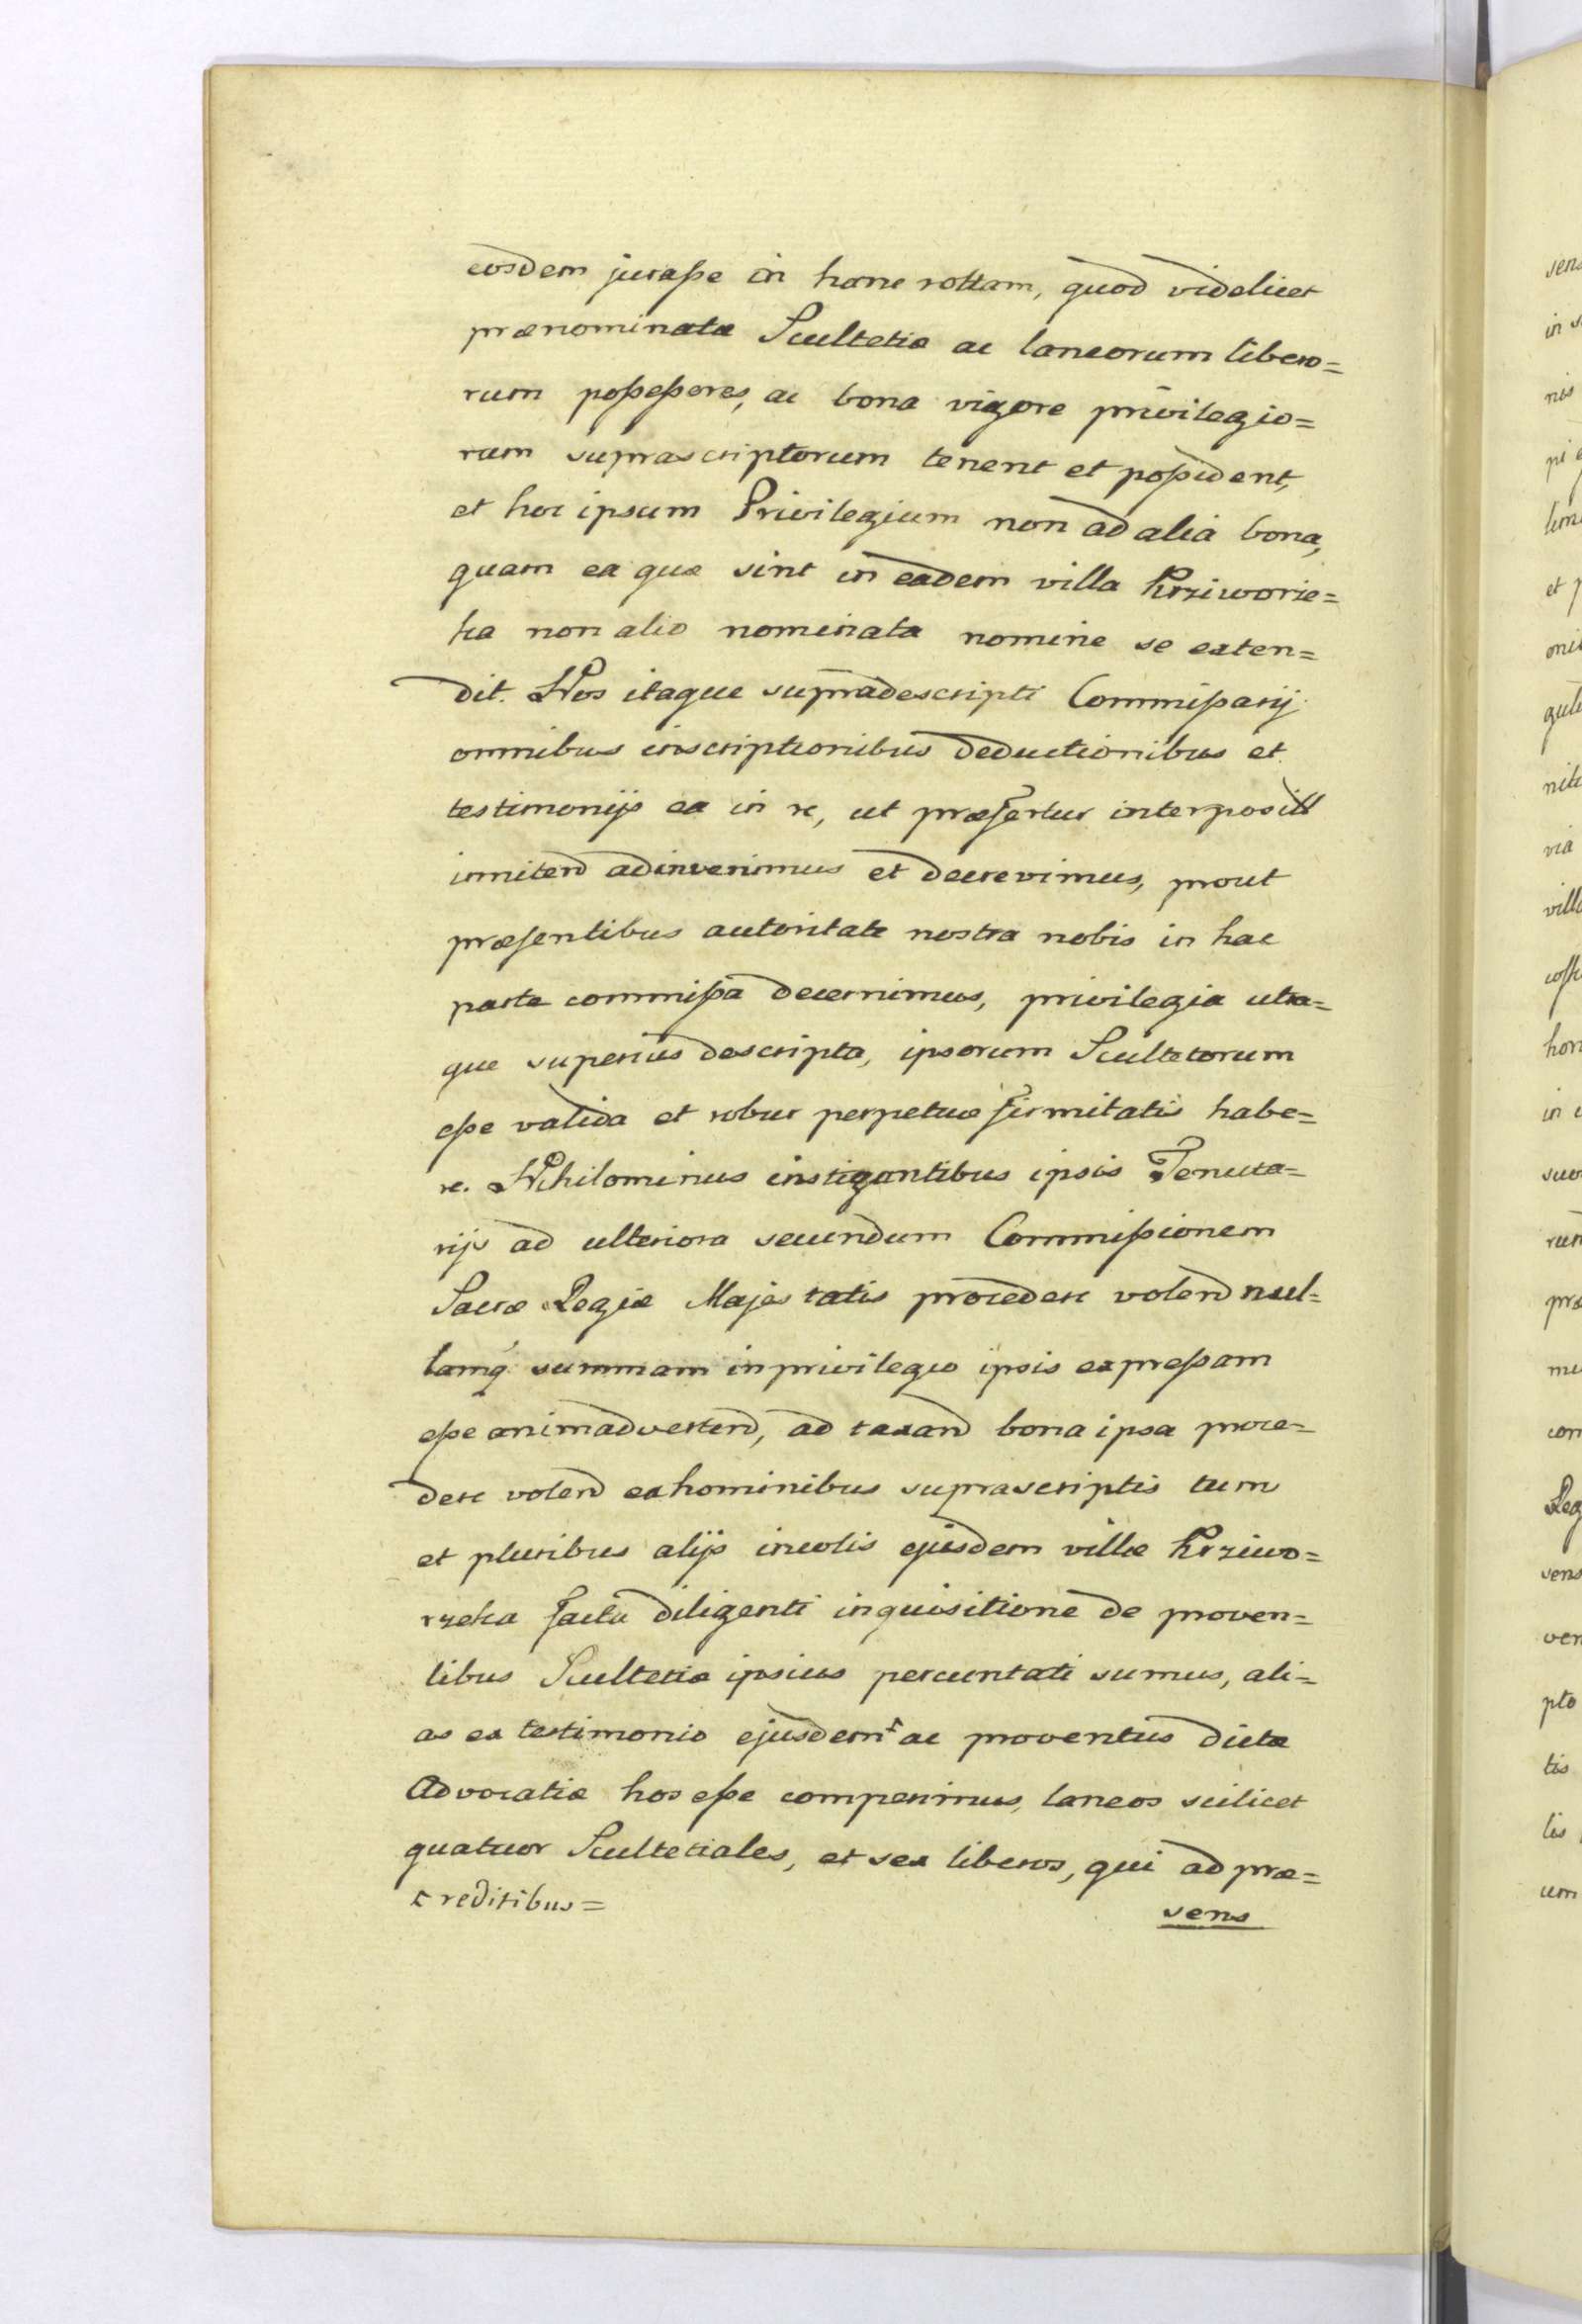 eosdem juraße in hanc rottam, quod videlicet
prænominatæ Scultetiæ ac laneorum libero=
rum poßeßores, ac bona vigore privilegio=
rum suprascriptorum tenent et poßident,
et hoc ipsum Privilegium non ad alia bona,
quam ea quæ sint in eadem villa Krziworze=
ka non alio nominata nomine se exten=
dit. Nos itaque supradescripti Commißarij
omnibus inscriptionibus deductionibus et
testimonijs ea in re, ut præfertur interposit
innitend adinvenimus et decrevimus, prout
præsentibus autoritate nostra nobis in hac
parte commißa decernimus, privilegia utra=
que superius descripta, ipsorum Scultetorum
eße valida et robur perpetuæ firmitatis habe=
re. Nihilominus instigantibus ipsis Tenuta=
rijs ad ulteriora secundum Commißionem
Sacræ Regiæ Majestatis procedere volend nul=
lamq summam in privilegio ipsis expreßam
eße animadvertend, ad taxand bona ipsa proce=
dere volend ex hominibus suprascriptis tum
et pluribus alijs incolis ejusdem villæ Krziwo=
rzeka facta diligenti inquisitione de proven=
tibus Scultetiæ ipsius percuntati sumus, ali=
as ex testimonio ejusdem ac proventus dictæ
Advocatiæ hos eße comperimus, laneos scilicet
quatuor Scultetiales, et sex liberos, qui ad præ=
reditibus=
sens